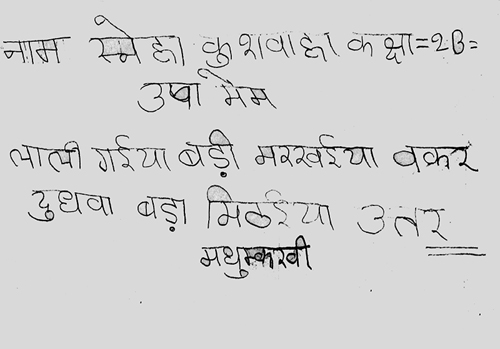 नाम स्नेहा कुशवाहा कक्षा=2B=
उषा मेम
लाली गईया बड़ी मरखईया वकर
दुधवा बड़ा मिठईया उतर
मधुमकखी